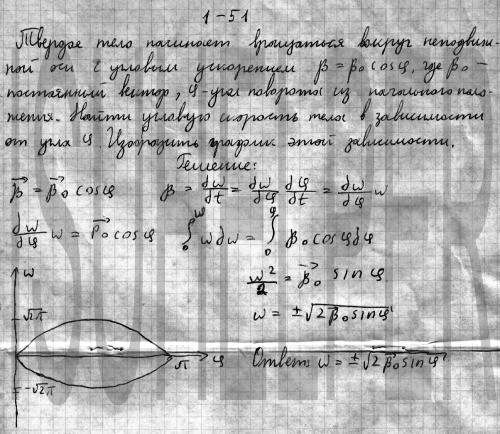 1-51
Твердое тело начинает вращаться вокруг неподвиж-
ной оси с угловым ускорением β = β₀ cosφ, где β₀ -
постоянный вектор, φ - угол поворота из начального поло-
жения. Найти угловую скорость тела в зависимости
от угла φ. Изобразить график этой зависимости.
Решение:
β⃗ = β⃗₀ cosφ β = dω/dt = dω/dφ dφ/dt = dω/dφ ω
dω/dφ ω = β⃗₀ cosφ ∫₀^ω ω dω = ∫₀^φ β₀ cosφ dφ
ω²/2 = β⃗₀ sinφ
ω = ±√2β₀sinφ
ω
√2π
π φ
-√2π
Ответ: ω = ±√2β₀sinφ